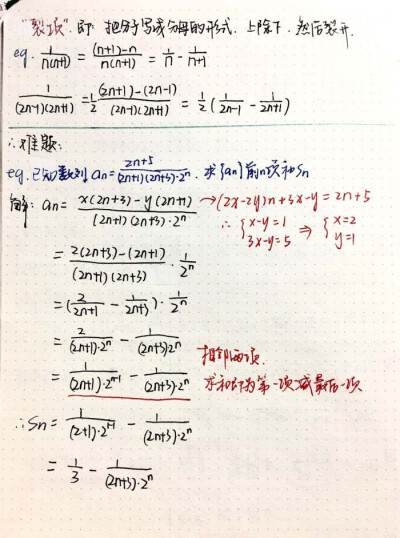 "裂项". 即 把分子写成分母的形式, 上除下, 然后裂开.
eg. 1/n(n+1) = (n+1)-n/n(n+1) = 1/n - 1/n+1
1/(2n-1)(2n+1) = 1/2 (2n+1)-(2n-1)/(2n-1)(2n+1) = 1/2 (1/2n-1 - 1/2n+1)
∴难题:
eg. 已知数列 an = 2n+5/(2n+1)(2n+3)·2^n . 求{an}前n项和Sn
解: an = x(2n+3)-y(2n+1)/(2n+1)(2n+3)·2^n → (2x-2y)n+3x-y = 2n+5
∴ { x-y=1 3x-y=5 ⇒ { x=2 y=1
= 2(2n+3)-(2n+1)/(2n+1)(2n+3) · 1/2^n
= (2/2n+1 - 1/2n+3) · 1/2^n
= 2/(2n+1)·2^n - 1/(2n+3)2^n
= 1/(2n+1)·2^n-1 - 1/(2n+3)·2^n
相邻两项.
求和即为第一项减最后一项
∴Sn = 1/(2+1)·2^1-1 - 1/(2n+3)·2^n
= 1/3 - 1/(2n+3)·2^n